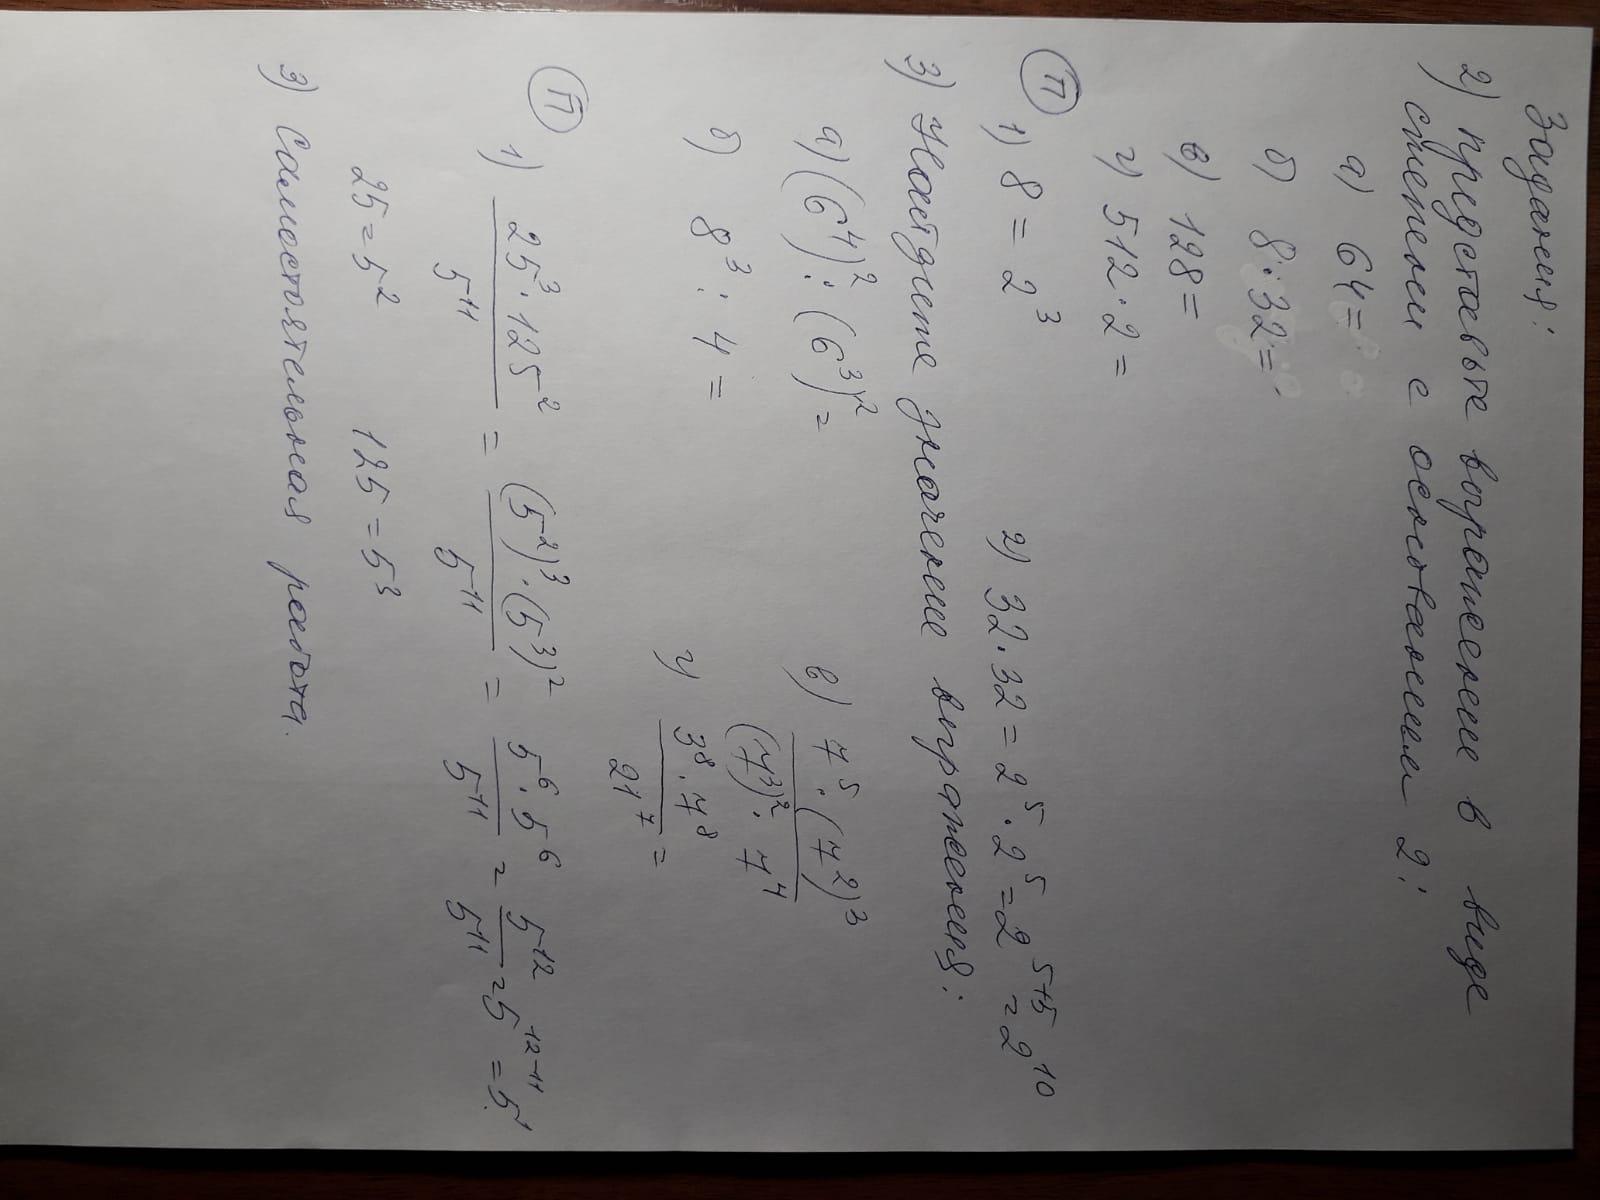 Задания:
2) представьте выражение в виде
степени с основанием 2:
а) 64 =
б) 8 · 32 =
в) 128 =
г) 512 · 2 =
П 1) 8 = 2³ 2) 32 · 32 = 2⁵ · 2⁵ = 2⁵⁺⁵ = 2¹⁰
3) Найдите значение выражения:
а) (6⁴)² : (6³)² = в) 7⁵ · (7²)³ / (7³)² · 7⁴
б) 8³ : 4 = г) 3⁸ · 7⁸ / 21⁷ =
П 1) 25³ · 125² / 5¹¹ = (5²)³ · (5³)² / 5¹¹ = 5⁶ · 5⁶ / 5¹¹ = 5¹² / 5¹¹ = 5¹²⁻¹¹ = 5¹
25 = 5² 125 = 5³
3) Самостоятельная работа.